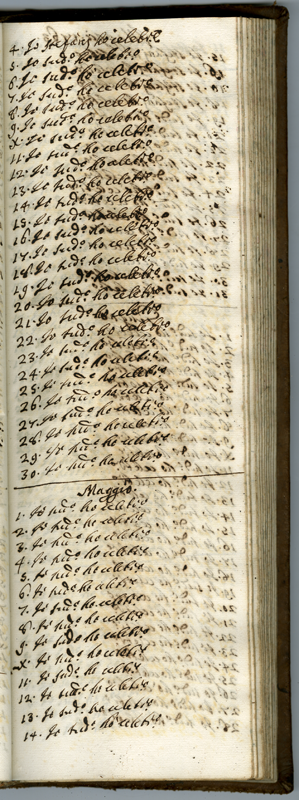 4. Io ho celebr.
5. Io sud.o ho celebr.o
6. Io sud.o ho celebr.o
7. Io sud.o ho celebr.o
8. Io sud.o ho celebr.o
9. Io sud.o ho celebr.o
X. Io sud.o ho celebr.o
11. Io sud.o ho celebr.o
12. Io sud.o ho celebr.o
13. Io sud.o ho celebr.o
14. Io sud.o ho celebr.o
15. Io sud.o ho celebr.o
16. Io sud.o ho celebr.o
17. Io sud.o ho celebr.o
18. Io sud.o ho celebr.o
19. Io sud.o ho celebr.o
20. Io sud.o ho celebr.o
21. Io sud.o ho celebr.o
22. Io sud.o ho celebr.o
23. Io sud.o ho celebr.o
24. Io sud.o ho celebr.o
25. Io sud.o ho celebr.o
26. Io sud.o ho celebr.o
27. Io sud.o ho celebr.o
28. Io sud.o ho celebr.o
29. Io sud.o ho celebr.o
30. Io sud.o ho celebr.o
Maggio
1. Io sud.o ho celebr.o
2. Io sud.o ho celebr.o
3. Io sud.o ho celebr.o
4. Io sud.o ho celebr.o
5. Io sud.o ho celebr.o
6. Io sud.o ho celebr.o
7. Io sud.o ho celebr.o
8. Io sud.o ho celebr.o
9. Io sud.o ho celebr.o
X. Io sud.o ho celebr.o
11. Io sud.o ho celebr.o
12. Io sud.o ho celebr.o
13. Io sud.o ho celebr.o
14. Io sud.o ho celebr.o